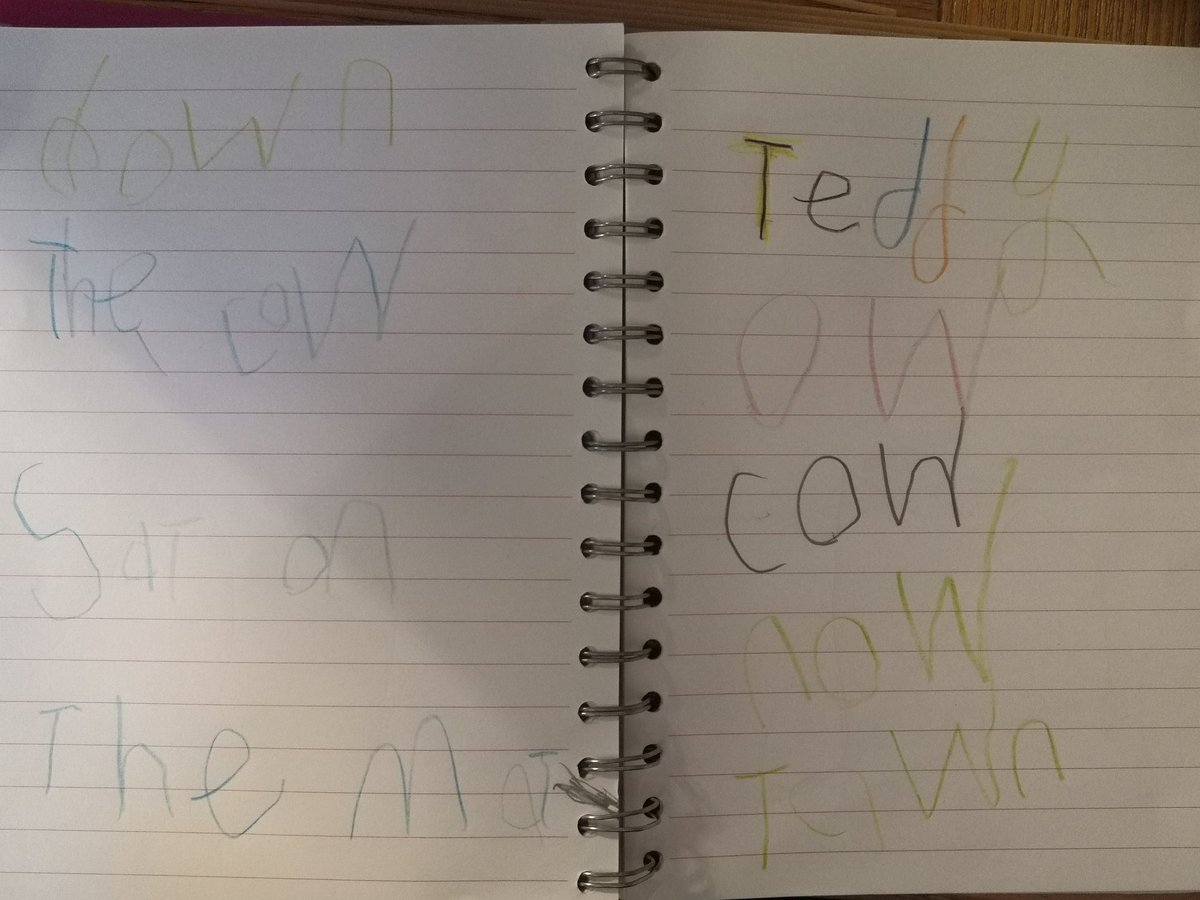 down
The cow
Sat on
The Mat
Teddy
ow
cow
now
Town